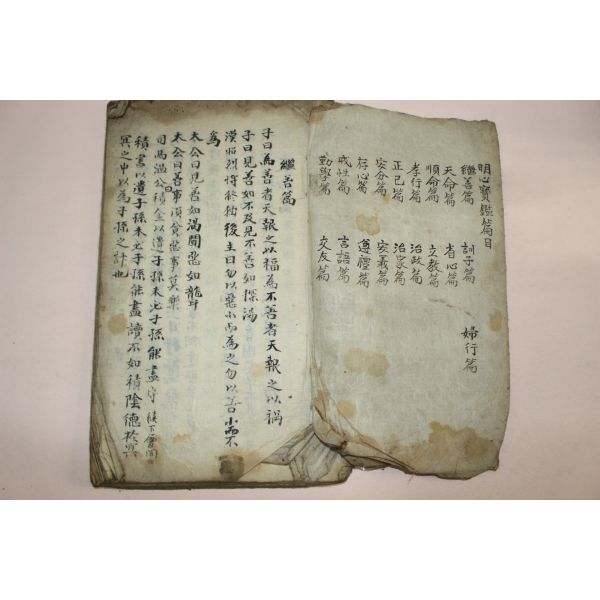 明心寶鑑篇目
繼善篇 訓子篇 婦行篇
天命篇 省心篇
順命篇 立敎篇
孝行篇 治政篇
正己篇 治家篇
安分篇 安義篇
存心篇 遵禮篇
戒性篇 言語篇
勤學篇 交友篇
繼善篇
子曰爲善者天報之以福爲不善者天報之以禍
子曰見善如不及見不善如探湯
漢昭烈將終勅後主曰勿以惡小而爲之勿以善小而不
爲
太公曰見善如渴聞惡如聾
太公曰善事須貪惡事莫樂
司馬溫公積金以遺子孫未必子孫能盡守
積書以遺子孫未必子孫能盡讀不如積陰德於冥
冥之中以爲子孫之計也